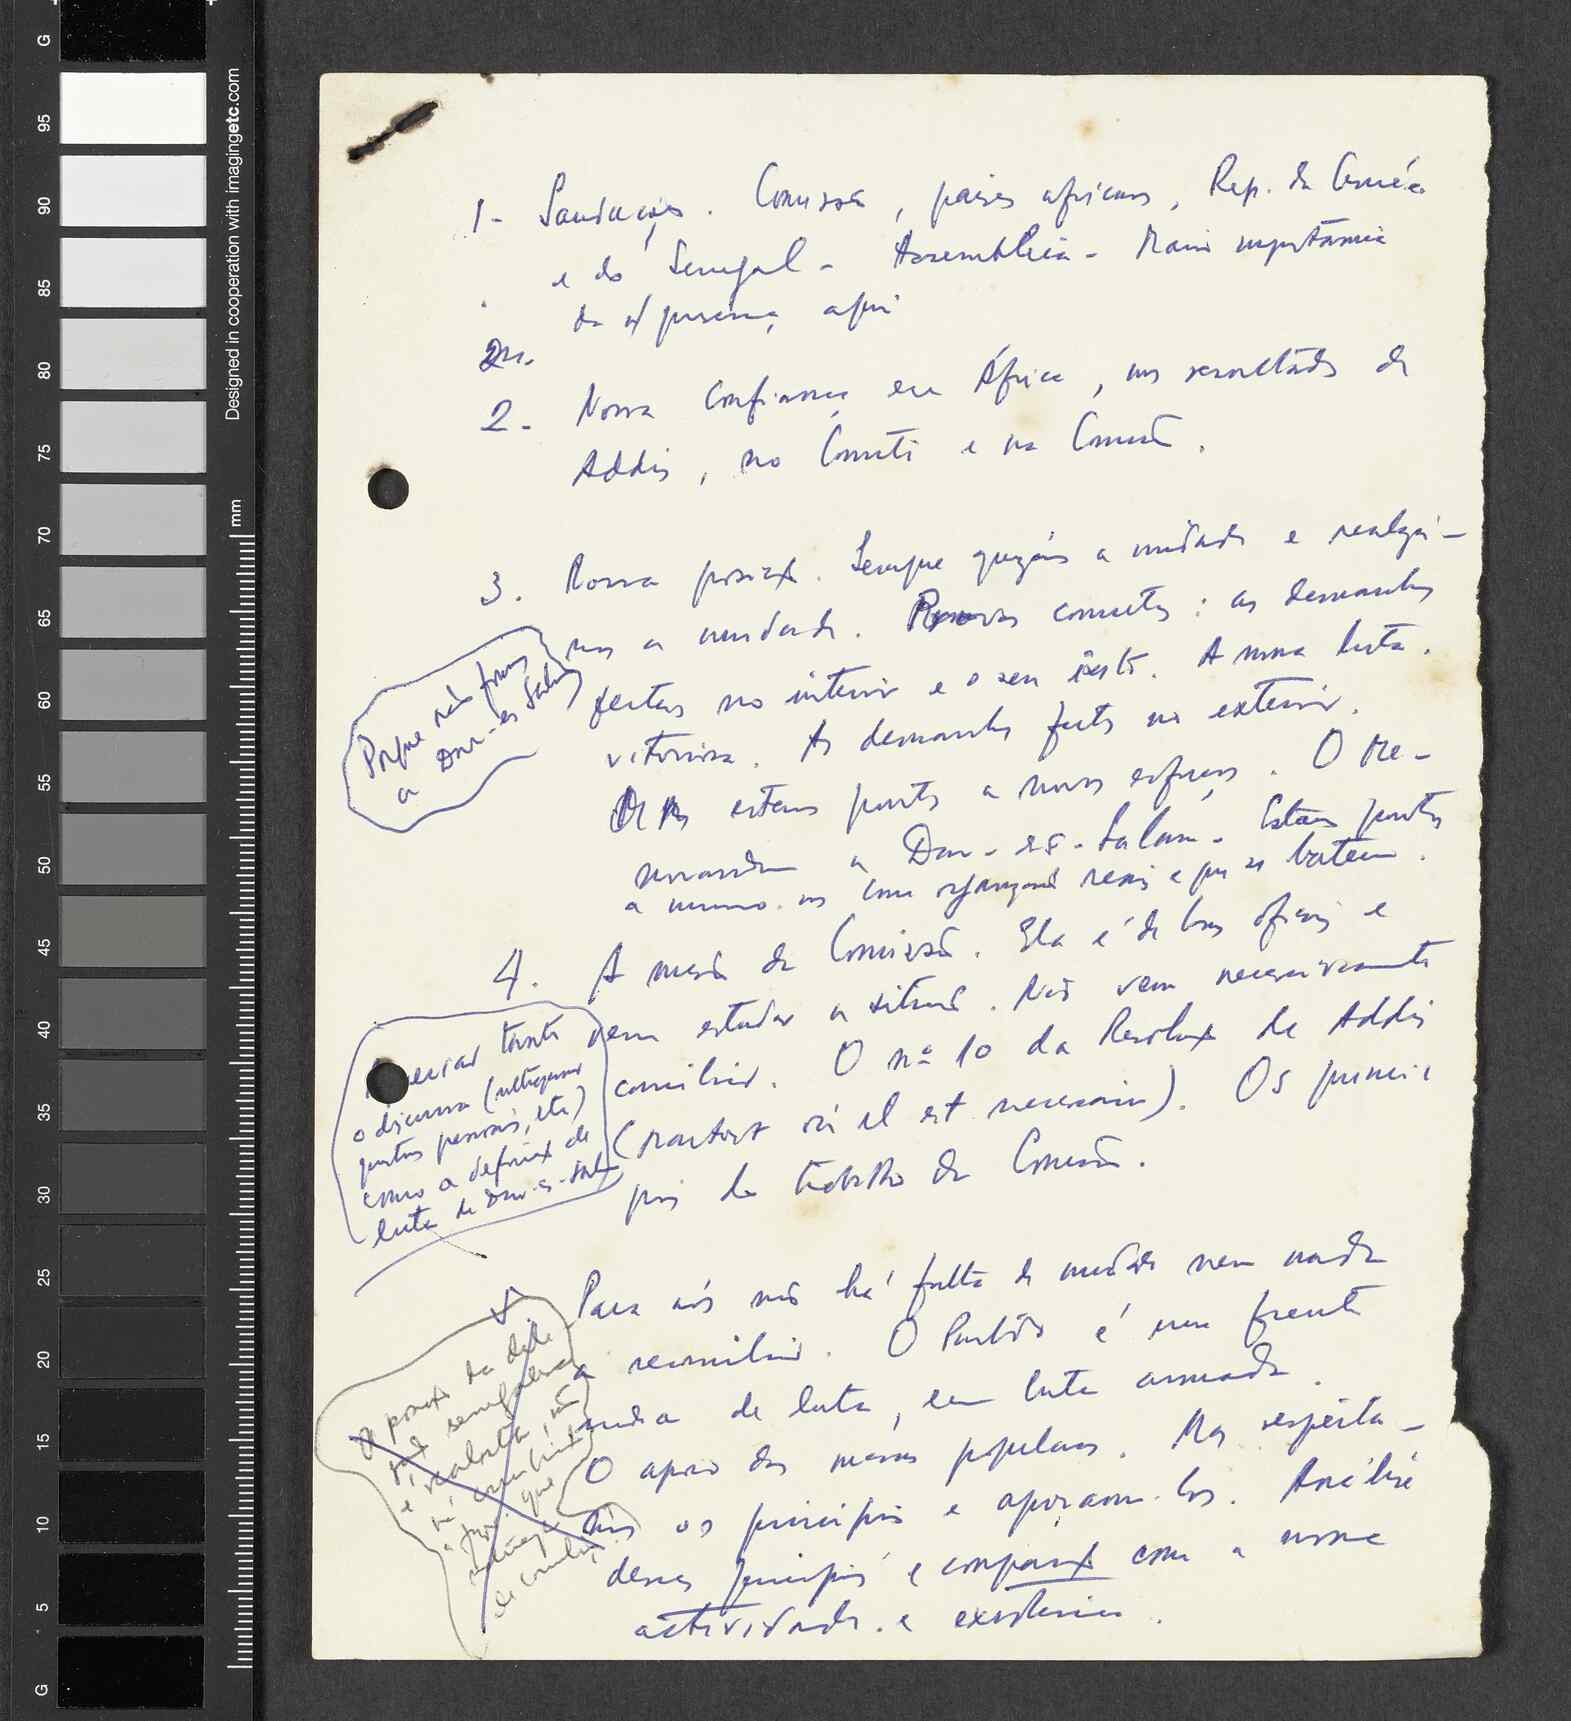 1- Saudações. Comissão, países africanos, Rep. da Guiné e
e do Senegal - Assembleia - Maior importância
da n/ presença aqui
2.
2. Nossa confiança em África, nos resultados de
Addis, no Comité e na Comissão.
3. Nossa posição. Sempre a unidade e realizá-
mos a unidade. Provas concretas: as demarches
feitas no interior e o seu êxito. A nossa luta
vitoriosa. As demarches feitas no exterior.
estamos prontos a novos esforços. O Me-
morandum a Dar-es-Salam. Estamos prontos
a com organizações reais e que se batem.
Porque não fomos
a Dar-es-Salam
4. A missão da Comissão. Ela é de bons ofícios e
vem estudar a situação. Não vem necessariamente
conciliar. O nº 10 da Resolução de Addis
(partout où il est necessaire). Os princí-
pios do trabalho da Comissão.
tanto
o discurso (ultrapassar
questões pessoais, etc)
como a definição de
luta de Dar-es-Salam
Para nós não há falta de unidade nem nada
a reconciliar. O Partido é uma frente
unida de luta, em luta armada.
O apoio das massas populares. Mas respeita-
mos os princípios e apoiamo-los. Análise
desses princípios e comparação com a nossa
actividade e existência.
A posição da dele
gação senegalesa
é realista, não
há
que
de